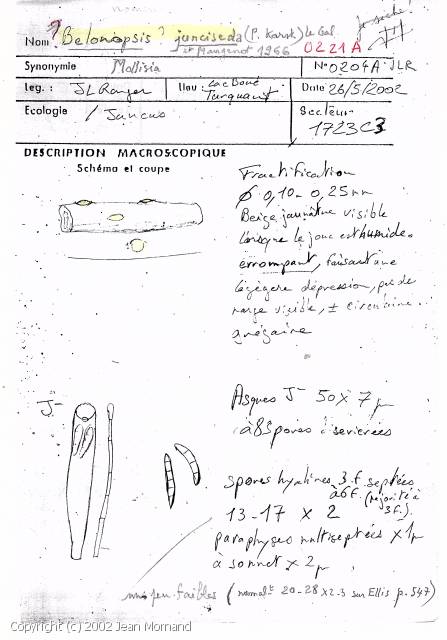 Nom ? Belonopsis ? junciseda (P. Karst.) le Gal
et Mangenot 1966
0221A
je séché
Synonymie Mollisia
N° 0204A JLR
Leg. : JL Ranger
Lieu : Lac Boué
Tarquant
Date 26/5/2002
Ecologie / Juncus
Secteur
1723C3
DESCRIPTION MACROSCOPIQUE
Schéma et coupe
Fructification
ø 0,10 - 0,25 mm
Beige jaunâtre visible
lorsque le jonc est humide.
errompant, faisant une
légègère dépression, pas de
marge visible, ± circulaire.
grégaire
J-
Asques J- 50 x 7 µ
à 8 spores bisériées
spores hyalines 3 f. septées
à 6 f. (majorité à
3 f.).
13-17 x 2
paraphyses multiseptées x 1µ
à sommet x 2µ
un peu faibles (normalt 20-28 x 2-3 sur Ellis p. 547)
Copyright (c) 2002 Jean Mornand